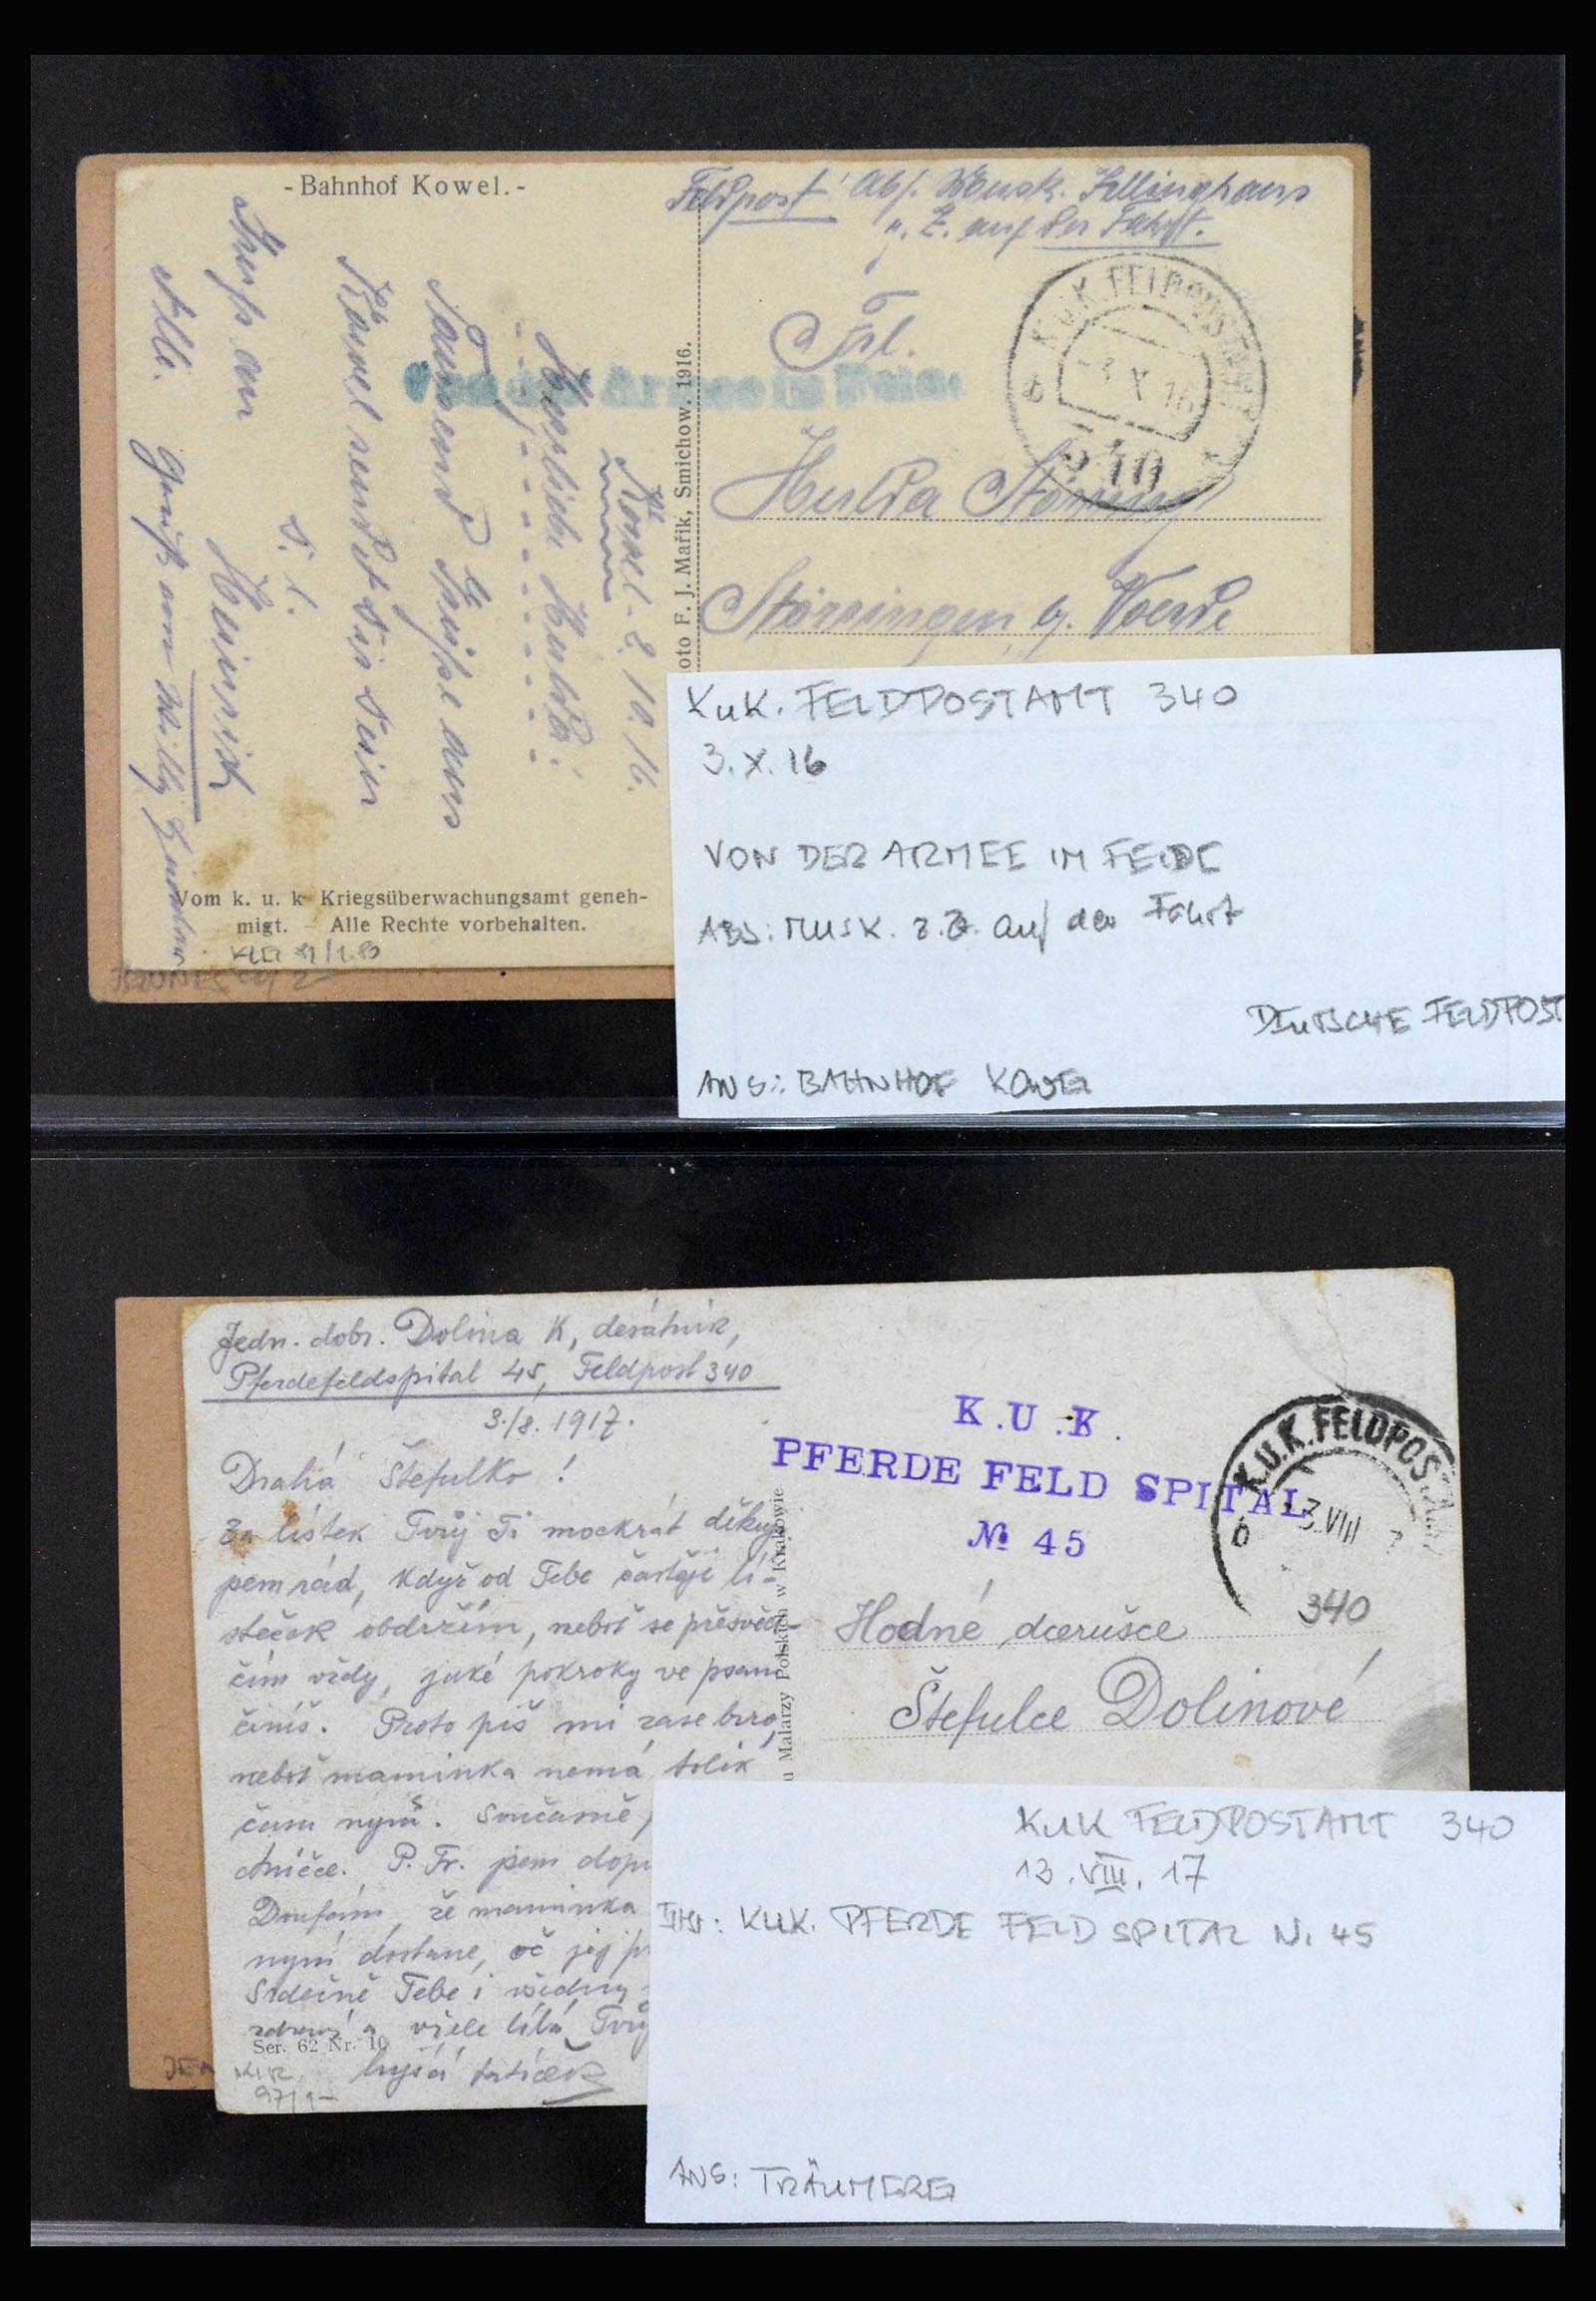 - Bahnhof Kowel. -
Feldpost! Abs. Musk.
z. Z. auf der Fahrt.
K.U.K. FELDPOSTAMT
-3 X 16
b
340
Von der Armee im Felde
Frl.
Hulda
g. Voerde
Kowel - 2.10.16.
Herzliebe Hulda!
Tausend Grüße aus
Kowel sendet Dir Dein
Heinrich
Gruß an
Alle.
Gruß von Willy
Foto F. J. Mařik, Smichow. 1916.
Vom k. u. k. Kriegsüberwachungsamt geneh-
migt. – Alle Rechte vorbehalten.
KuK. FELDPOSTAMT 340
3. X. 16
VON DER ARMEE IM FELDE
ABS: MUSK. z. Z. auf der Fahrt
DEUTSCHE FELDPOST
ANS: BAHNHOF KOWEL
Jedn. dobr. Dolina K, desátník,
Pferdefeldspital 45, Feldpost 340
3./8. 1917.
Drahá Štefulko!
Za lístek Tvůj Ti mockrát děkuji
jsem rád, když od Tebe častěji lí-
steček obdržím, nebot se přesvěd-
čím vždy, jaké pokroky ve psaní
činíš. Proto piš mi zase brzo,
nebot maminka nemá tolik
času nyní. Současně,
P. Fr. jsem
Doufám, že maminka
nyní dostane, oč jej
Srdečně Tebe i všechny
zdraví a vřele líbá Tvůj
tatíček
Ser. 62 Nr. 10
97/1-
u Malarzy Polskich w Krakowie
K.U.K.
PFERDE FELD SPITAL
№ 45
K.U.K. FELDPOSTAMT
b
3. VIII
340
Hodné dcerušce
Štefulce Dolinové
KUK FELDPOSTAMT 340
13. VIII. 17
KUK. PFERDE FELD SPITAL N. 45
ANS: TRÄUMEREI